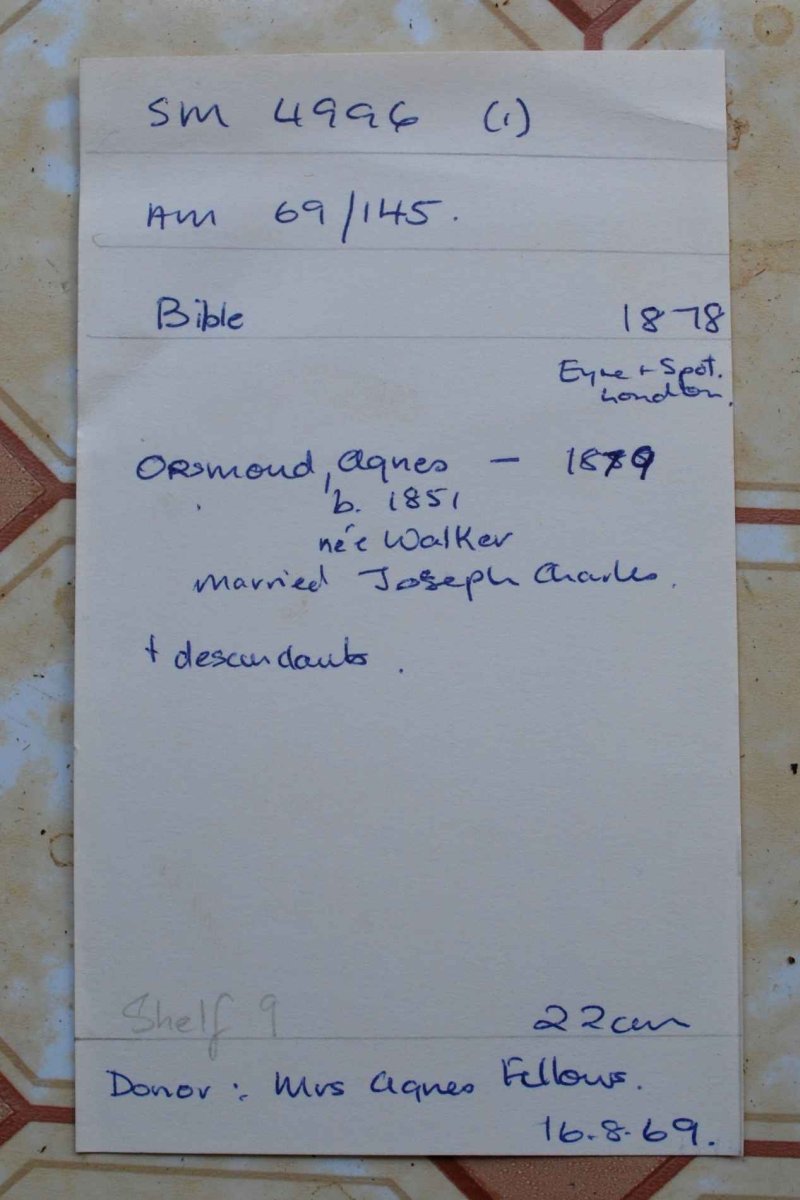 SM 4996 (1)
AM 69/145.
Bible 1878
Eyre + Spot.
London.
ORsmond, Agnes - 1879
b. 1851
née Walker
married Joseph Charles.
+ descendants.
Shelf 9 22cm
Donor: Mrs Agnes Fellows.
16.8.69.